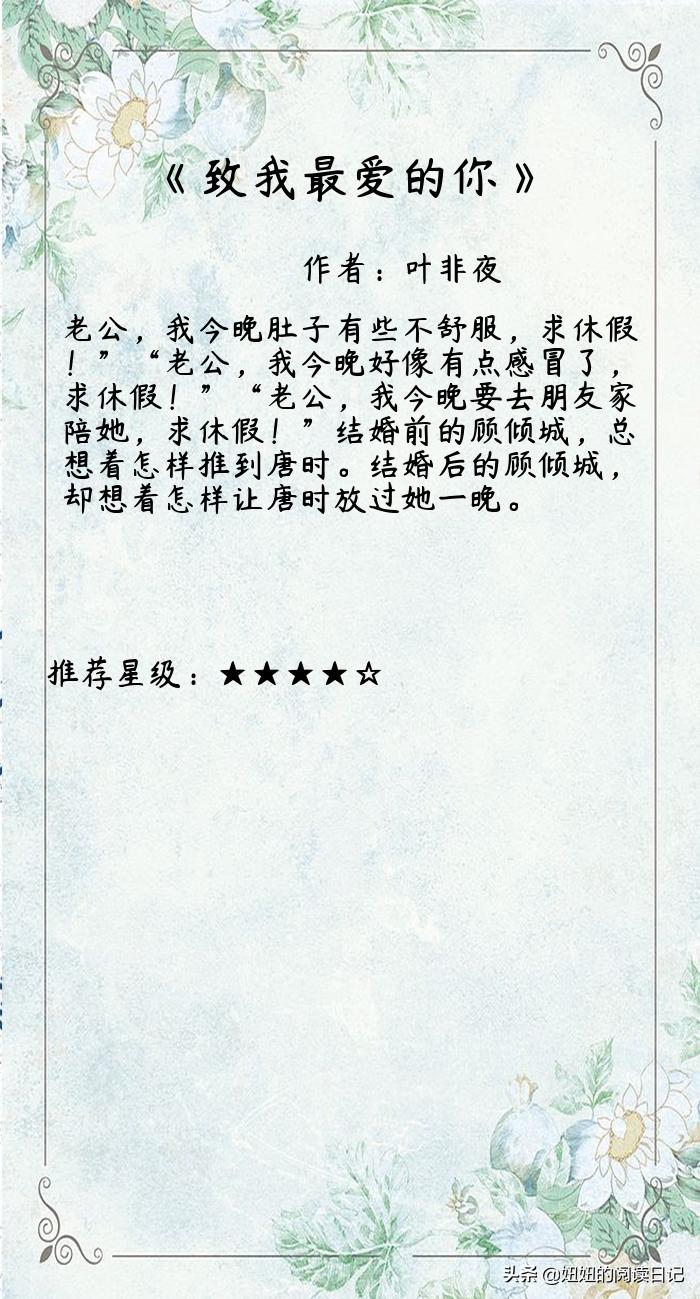 《致我最爱的你》
作者：叶非夜
老公，我今晚肚子有些不舒服，求休假
！”“老公，我今晚好像有点感冒了，
求休假！”“老公，我今晚要去朋友家
陪她，求休假！”结婚前的顾倾城，总
想着怎样推到唐时。结婚后的顾倾城，
却想着怎样让唐时放过她一晚。
推荐星级：★★★★☆
头条 @妞妞的阅读日记